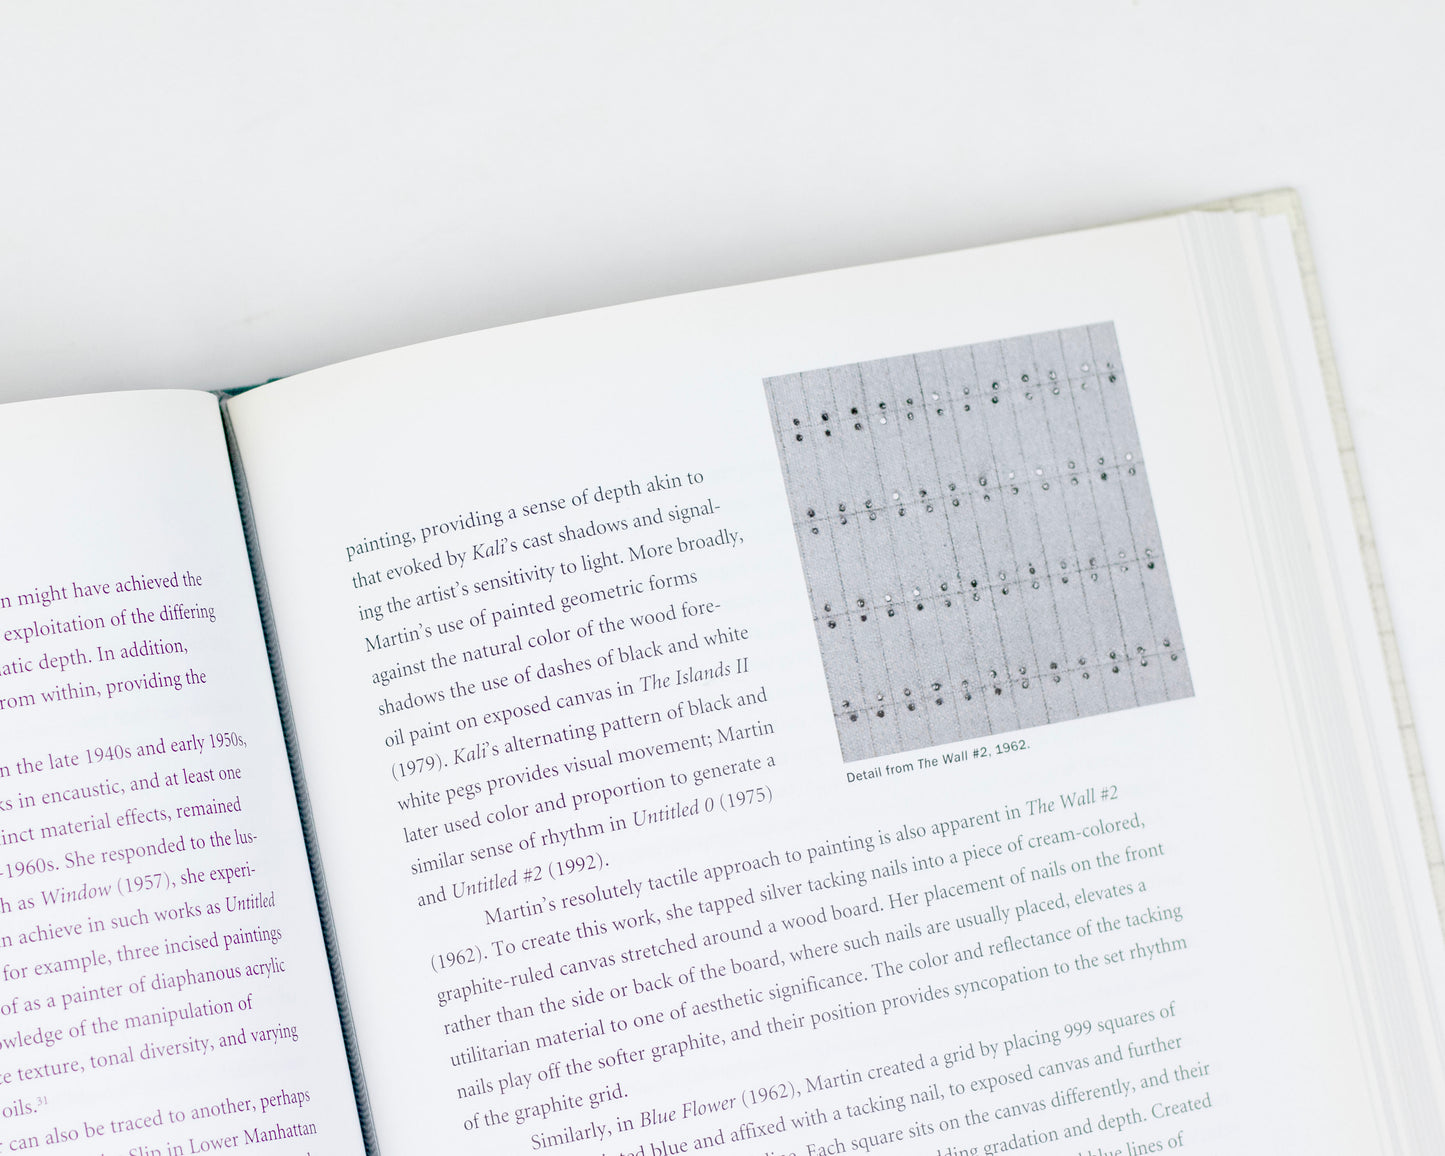 n might have achieved the
exploitation of the differing
atic depth. In addition,
rom within, providing the
n the late 1940s and early 1950s,
ks in encaustic, and at least one
inct material effects, remained
-1960s. She responded to the lus-
h as Window (1957), she experi-
n achieve in such works as Untitled
for example, three incised paintings
of as a painter of diaphanous acrylic
owledge of the manipulation of
ce texture, tonal diversity, and varying
oils.31
r can also be traced to another, perhaps
Slip in Lower Manhattan
painting, providing a sense of depth akin to
that evoked by Kali's cast shadows and signal-
ing the artist's sensitivity to light. More broadly,
Martin's use of painted geometric forms
against the natural color of the wood fore-
shadows the use of dashes of black and white
oil paint on exposed canvas in The Islands II
(1979). Kali's alternating pattern of black and
white pegs provides visual movement; Martin
later used color and proportion to generate a
similar sense of rhythm in Untitled 0 (1975)
and Untitled #2 (1992).
Detail from The Wall #2, 1962.
Martin's resolutely tactile approach to painting is also apparent in The Wall #2
(1962). To create this work, she tapped silver tacking nails into a piece of cream-colored,
graphite-ruled canvas stretched around a wood board. Her placement of nails on the front
rather than the side or back of the board, where such nails are usually placed, elevates a
utilitarian material to one of aesthetic significance. The color and reflectance of the tacking
nails play off the softer graphite, and their position provides syncopation to the set rhythm
of the graphite grid.
Similarly, in Blue Flower (1962), Martin created a grid by placing 999 squares of
ted blue and affixed with a tacking nail, to exposed canvas and further
Each square sits on the canvas differently, and their
lding gradation and depth. Created
blue lines of